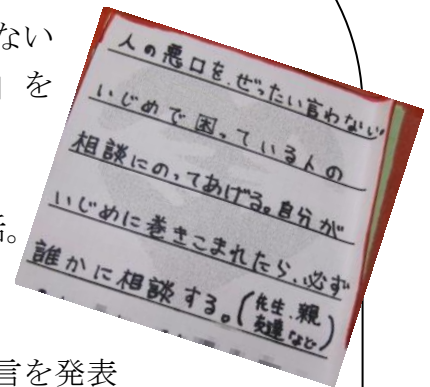 ない
を
人の悪口を、ぜったい言わない
いじめで困っている人の
相談にのってあげる。自分が
いじめに巻きこまれたら、必ず
誰かに相談する。(先生、親
友達など)
。
言を発表